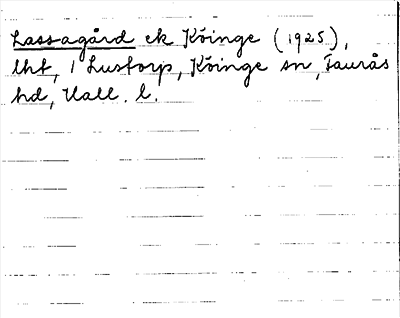 Lassagård ek Köinge (1925),
lht, 1 Lustorp, Köinge sn, Faurås
hd, Hall. l.